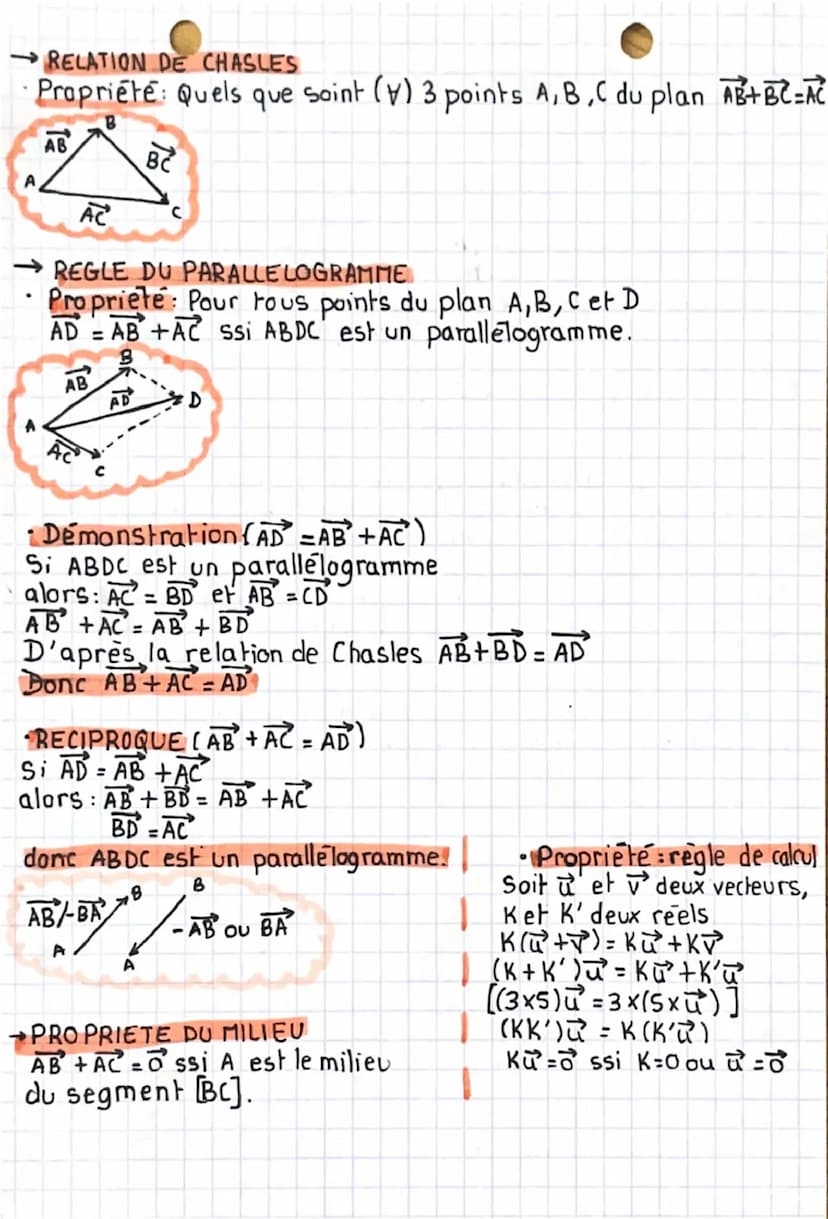 → RELATION DE CHASLES
· Propriété: Quels que soint (∀) 3 points A, B, C du plan AB⃗+BC⃗=AC⃗
B
AB⃗
BC⃗
A
AC⃗
C
→ REGLE DU PARALLELOGRAMME
· Propriété: Pour tous points du plan A, B, C et D
AD⃗ = AB⃗ + AC⃗ ssi ABDC est un parallélogramme.
B
AB⃗
AD⃗
D
A
AC⃗
C
· Démonstration (AD⃗ = AB⃗ + AC⃗)
Si ABDC est un parallélogramme
alors: AC⃗ = BD⃗ et AB⃗ = CD⃗
AB⃗ + AC⃗ = AB⃗ + BD⃗
D'après la relation de Chasles AB⃗+BD⃗ = AD⃗
Donc AB⃗ + AC⃗ = AD⃗
·RECIPROQUE (AB⃗ + AC⃗ = AD⃗)
Si AD⃗ = AB⃗ + AC⃗
alors : AB⃗ + BD⃗ = AB⃗ + AC⃗
BD⃗ = AC⃗
donc ABDC est un parallélogramme.
AB⃗/-BA⃗
B
A
B
-AB⃗ ou BA⃗
A
→ PROPRIETE DU MILIEU
AB⃗ + AC⃗ = 0⃗ ssi A est le milieu
du segment [BC].
· Propriété : règle de calcul
Soit u⃗ et v⃗ deux vecteurs,
K et K' deux réels
K(u⃗+v⃗) = Ku⃗ + Kv⃗
(K + K')u⃗ = Ku⃗ + K'u⃗
[(3×5)u⃗ = 3×(5×u⃗)]
(KK')u⃗ = K(K'u⃗)
Ku⃗ = 0⃗ ssi K=0 ou u⃗ = 0⃗